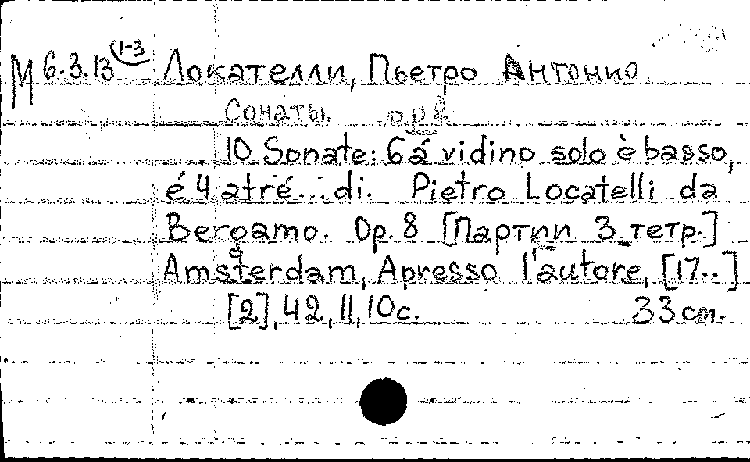 М 6.3.13 1-3 Локателли, Пьетро Антонио.
Сонаты. op 8
10 Sonate: 6 á vidino solo è basso,
é 4 atré... di. Pietro Locatelli da
Bergamo. Op. 8 [Партии 3 тетр.]
Amsterdam, Apresso l'autore, [17..]
[2], 42, 11, 10 c. 33 cm.